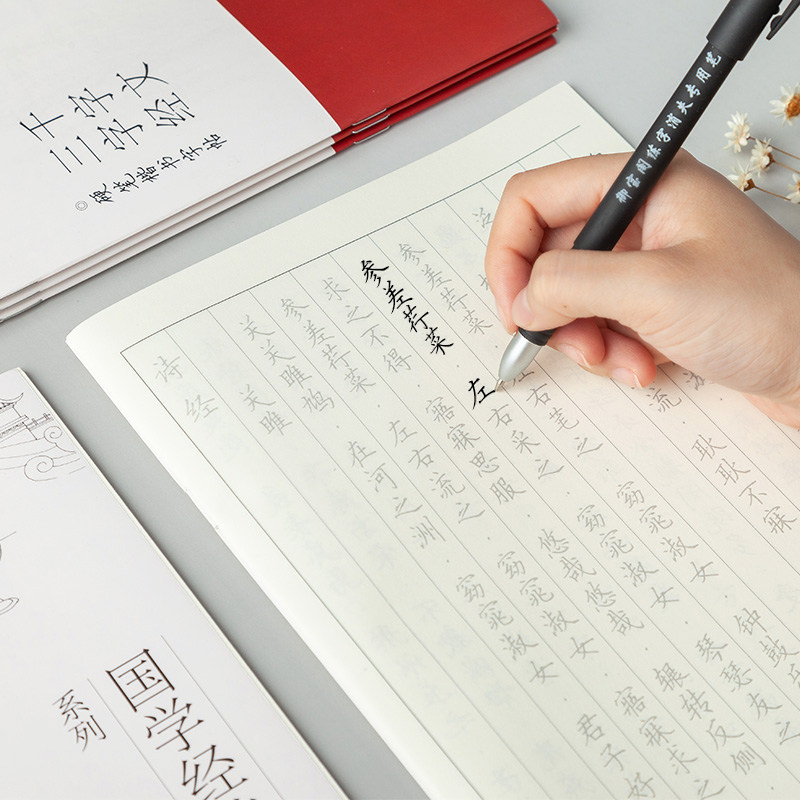 千字文
三字经
◎硬笔楷书字帖
御宝阁练字消失专用笔
诗经
关雎
关关雎鸠 在河之洲 窈窕淑女 君子好
参差荇菜 左右流之 窈窕淑女 寤寐求之
求之不得 寤寐思服 悠哉悠哉 辗转反侧
参差荇菜 左右采之 窈窕淑女 琴瑟友之
参差荇菜 左右芼之 窈窕淑女 钟鼓
流 耿耿不寐
国学经
系列